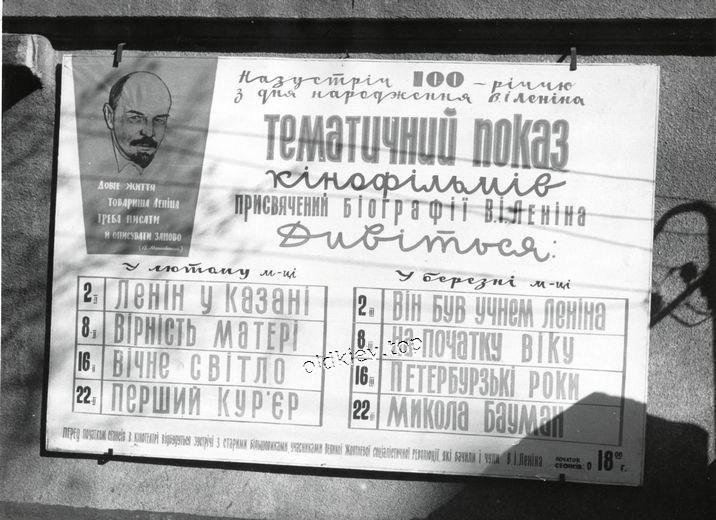 Назустріч 100-річчю
з дня народження В.І.Леніна
тематичний показ
кінофільмів
присвячений біографії В.І.Леніна
Дивіться:
Довге життя
товариша Леніна
треба писати
й описувати заново
У лютому м-ці
2 Ленін у Казані
8 Вірність матері
16 Вічне світло
22 Перший кур'єр
У березні м-ці
2 Він був учнем Леніна
8 На початку віку
16 Петербурзькі роки
22 Микола Бауман
oldkiev.top
Перед початком сеансів в кінотеатрі відбудуться зустрічі з старими большовиками, учасниками Великої Жовтневої соціалістичної революції, які бачили і чули В.І.Леніна
початок сеансів: о 18 00 г.